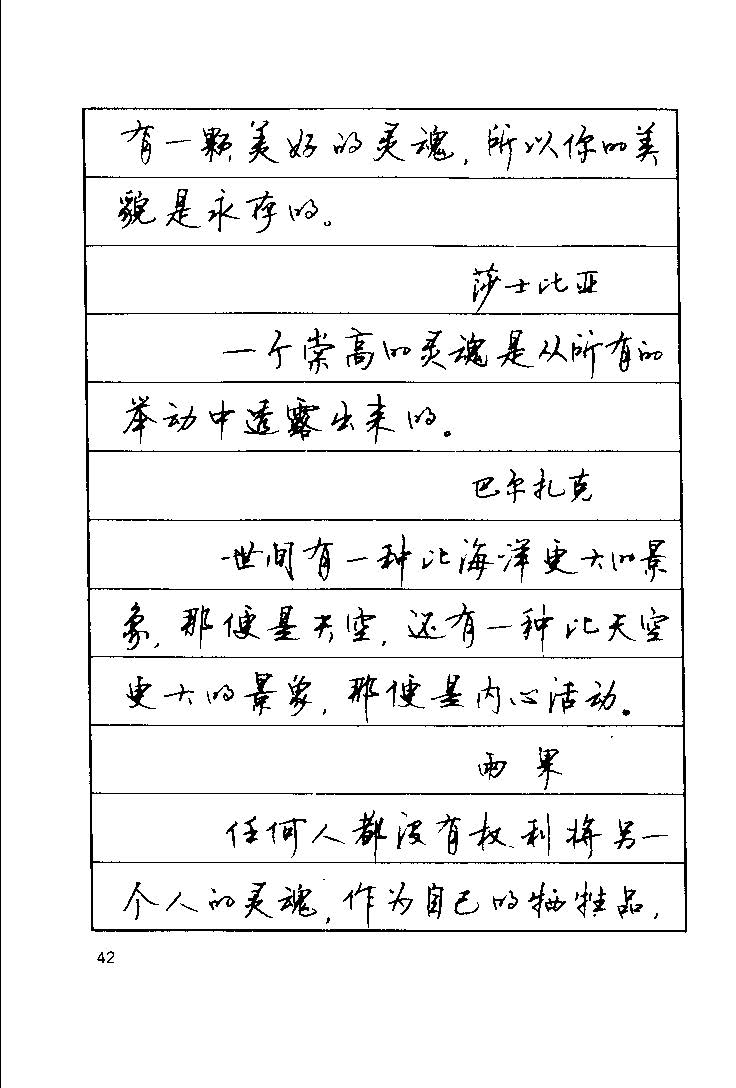 有一颗美好的灵魂,所以你的美
貌是永存的。
莎士比亚
一个崇高的灵魂是从所有的
举动中透露出来的。
巴尔扎克
世间有一种比海洋更大的景
象,那便是天空,还有一种比天空
更大的景象,那便是内心活动。
雨果
任何人都没有权利将另一
个人的灵魂,作为自己的牺牲品,
42